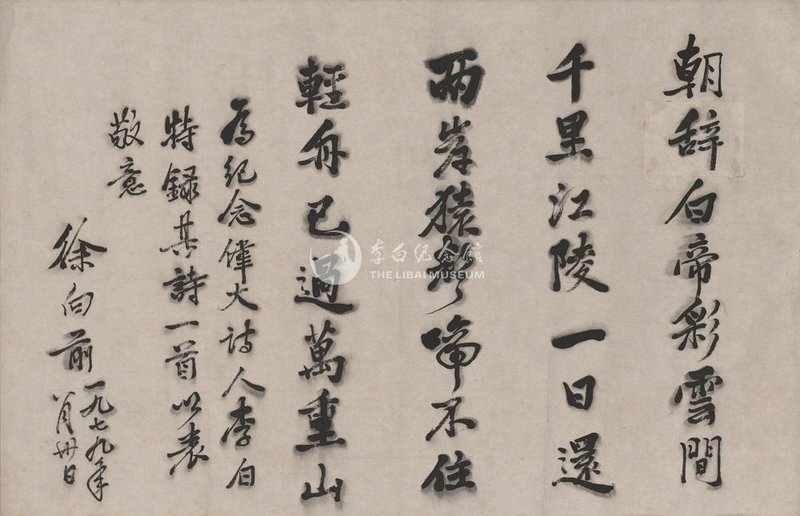 朝辞白帝彩雲間
千里江陵一日還
兩岸猿聲啼不住
輕舟已過萬重山
為紀念偉大詩人李白
特録其詩一首以表
敬意
徐向前
一九七九年
八月卅日
李白纪念馆
THE LIBAI MUSEUM